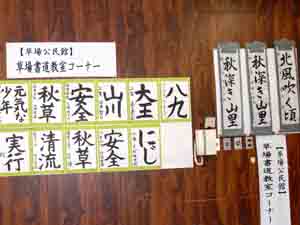 【草場公民館】
草場書道教室コーナー
八九
大王
山川
安全
秋草
元気な
少年
にさし
安全
秋草
清流
実行
北風吹く頃
秋深き山里
秋深き山里
【草場公民館】
草場書道教室コーナー